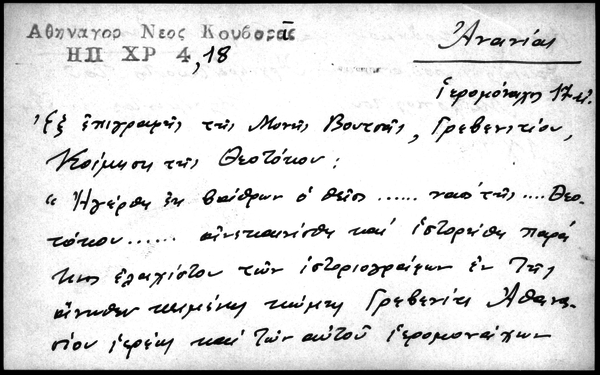 Ἀθηναγορ Νεος Κουβαρᾶς
ΗΠ ΧΡ 4, 18
Ἀνανίας
ἱερομόναχος 17 αἰ.
Ἐξ ἐπιγραφῆς τῆς Μονῆς Βουτσᾶς, Γρεβενιτίου,
Κοίμηση τῆς Θεοτόκου:
"Ἠγέρθη ἐκ βάθρων ὁ θεῖος ...... ναὸς τῆς .... Θεο-
τόκου ...... ἀνεκαινίσθη καὶ ἱστορήθη παρὰ
κἀμοῦ ἐλαχίστου τῶν ἱστοριογράφων ἐν τῆς
ἄνωθεν κειμένης κώμης Γρεβενίτι Ἀθανα-
σίου ἱερέως καὶ τῶν αὐτοῦ ἱερομονάχων